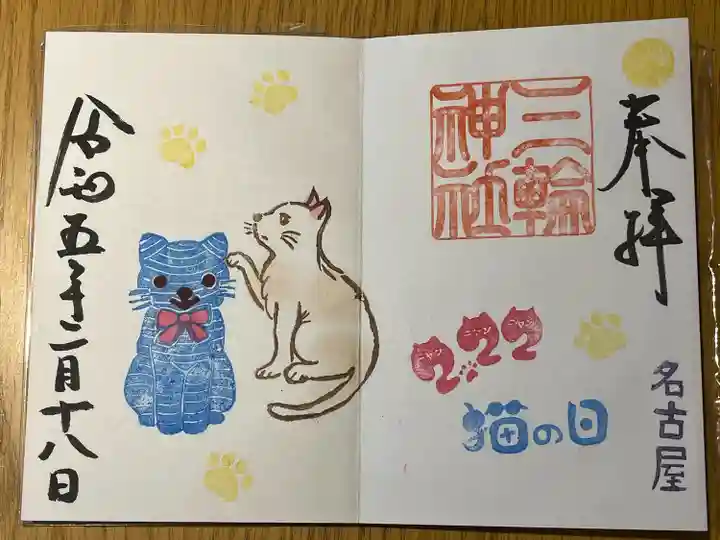 奉拝
三輪
神社
ニャン ニャン ニャン
2.22
猫の日
名古屋
令和五年二月十八日